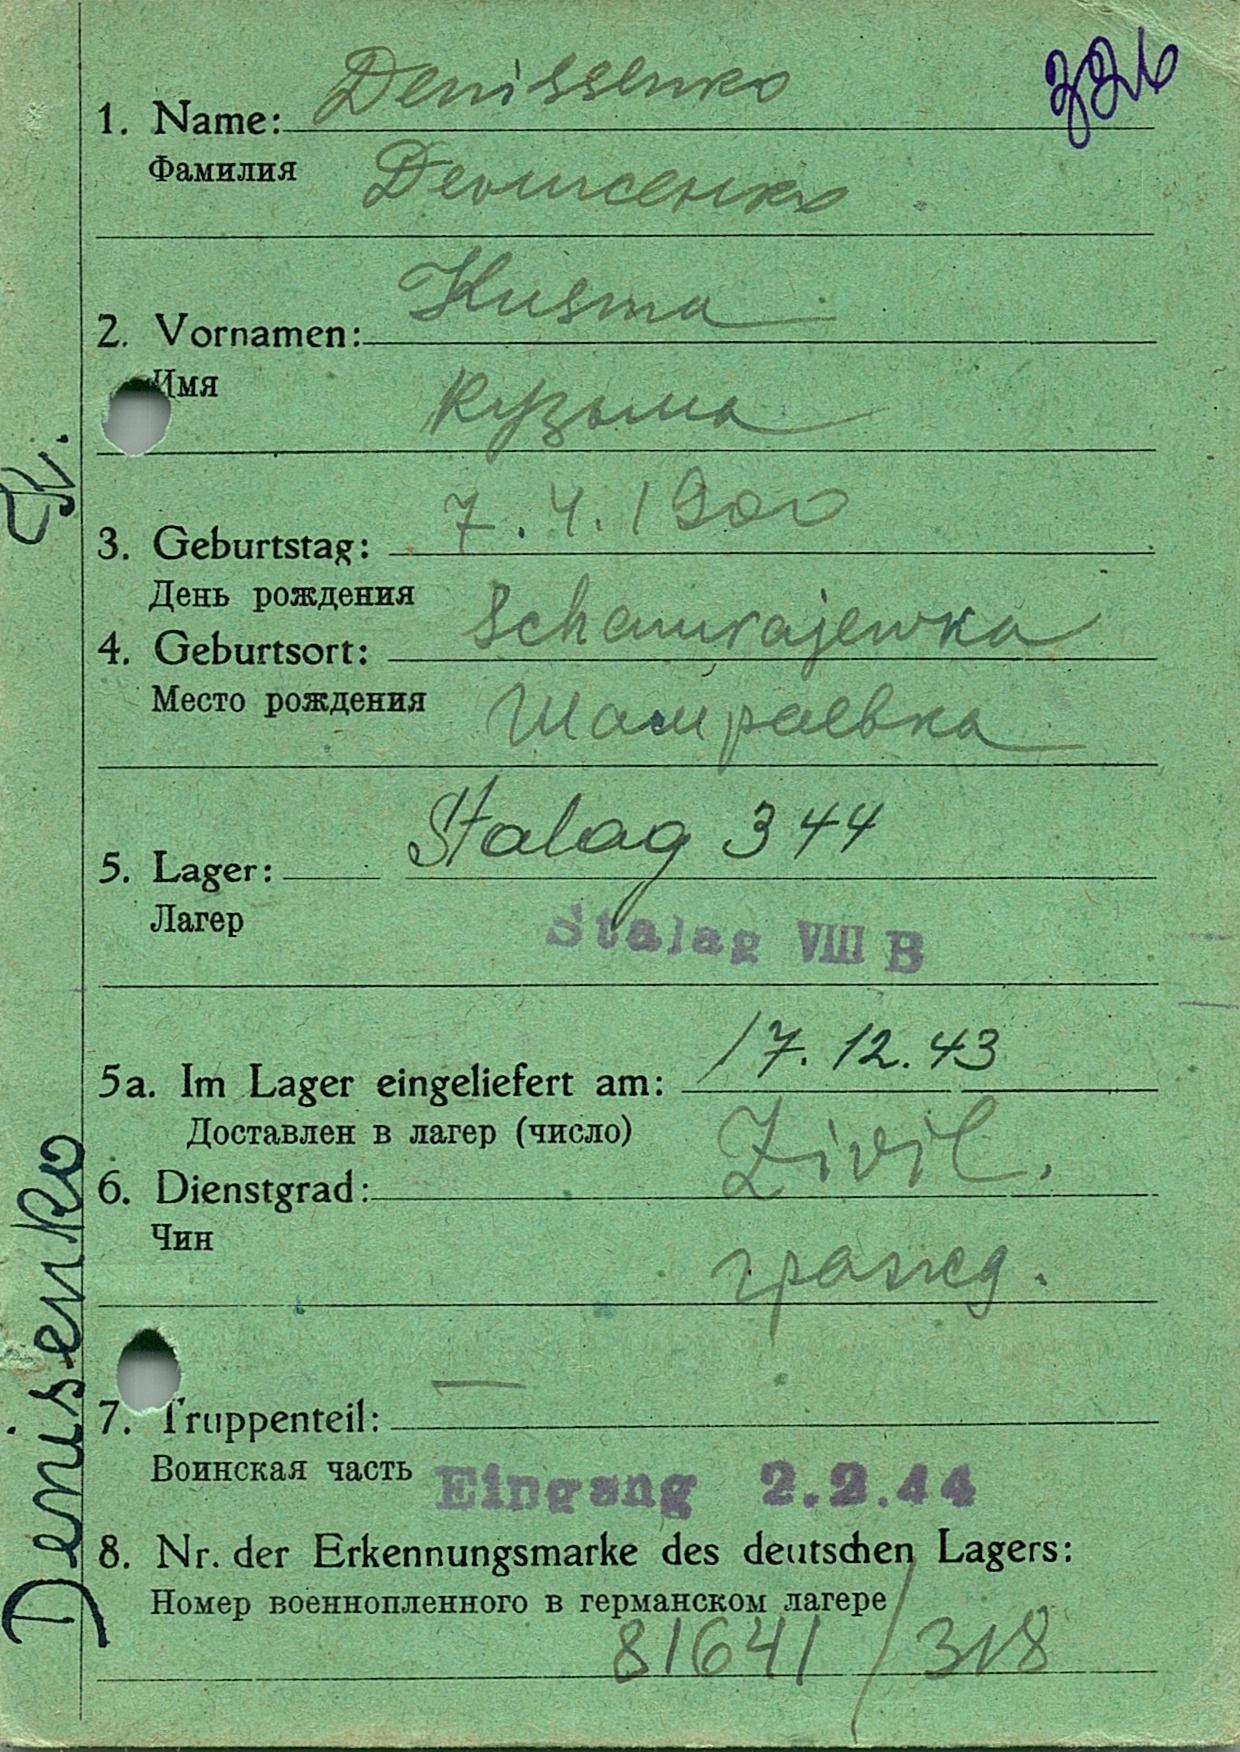 326
1. Name: Denissenko
Фамилия Денисенко
2. Vornamen: Kusma
Имя Кузьма
3. Geburtstag: 7.4.1900
День рождения
4. Geburtsort: Schamrajewka
Место рождения Шамраевка
5. Lager: Stalag 344
Лагер
Stalag VIII B
5a. Im Lager eingeliefert am: 17.12.43
Доставлен в лагер (число)
6. Dienstgrad: Zivil.
Чин гражд.
7. Truppenteil: —
Воинская часть
Eingang 2.2.44
8. Nr. der Erkennungsmarke des deutschen Lagers:
Номер военнопленного в германском лагере
81641 / 318
Denisenko K.